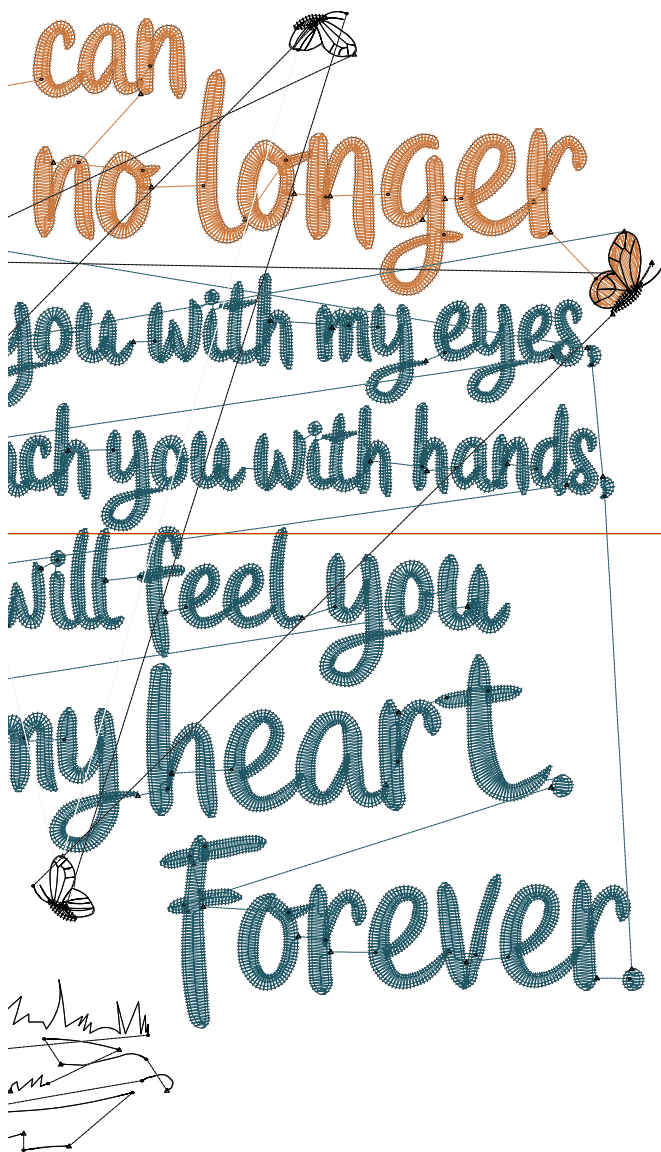 can
no longer
you with my eyes,
ch you with hands,
will feel you
my heart.
Forever.